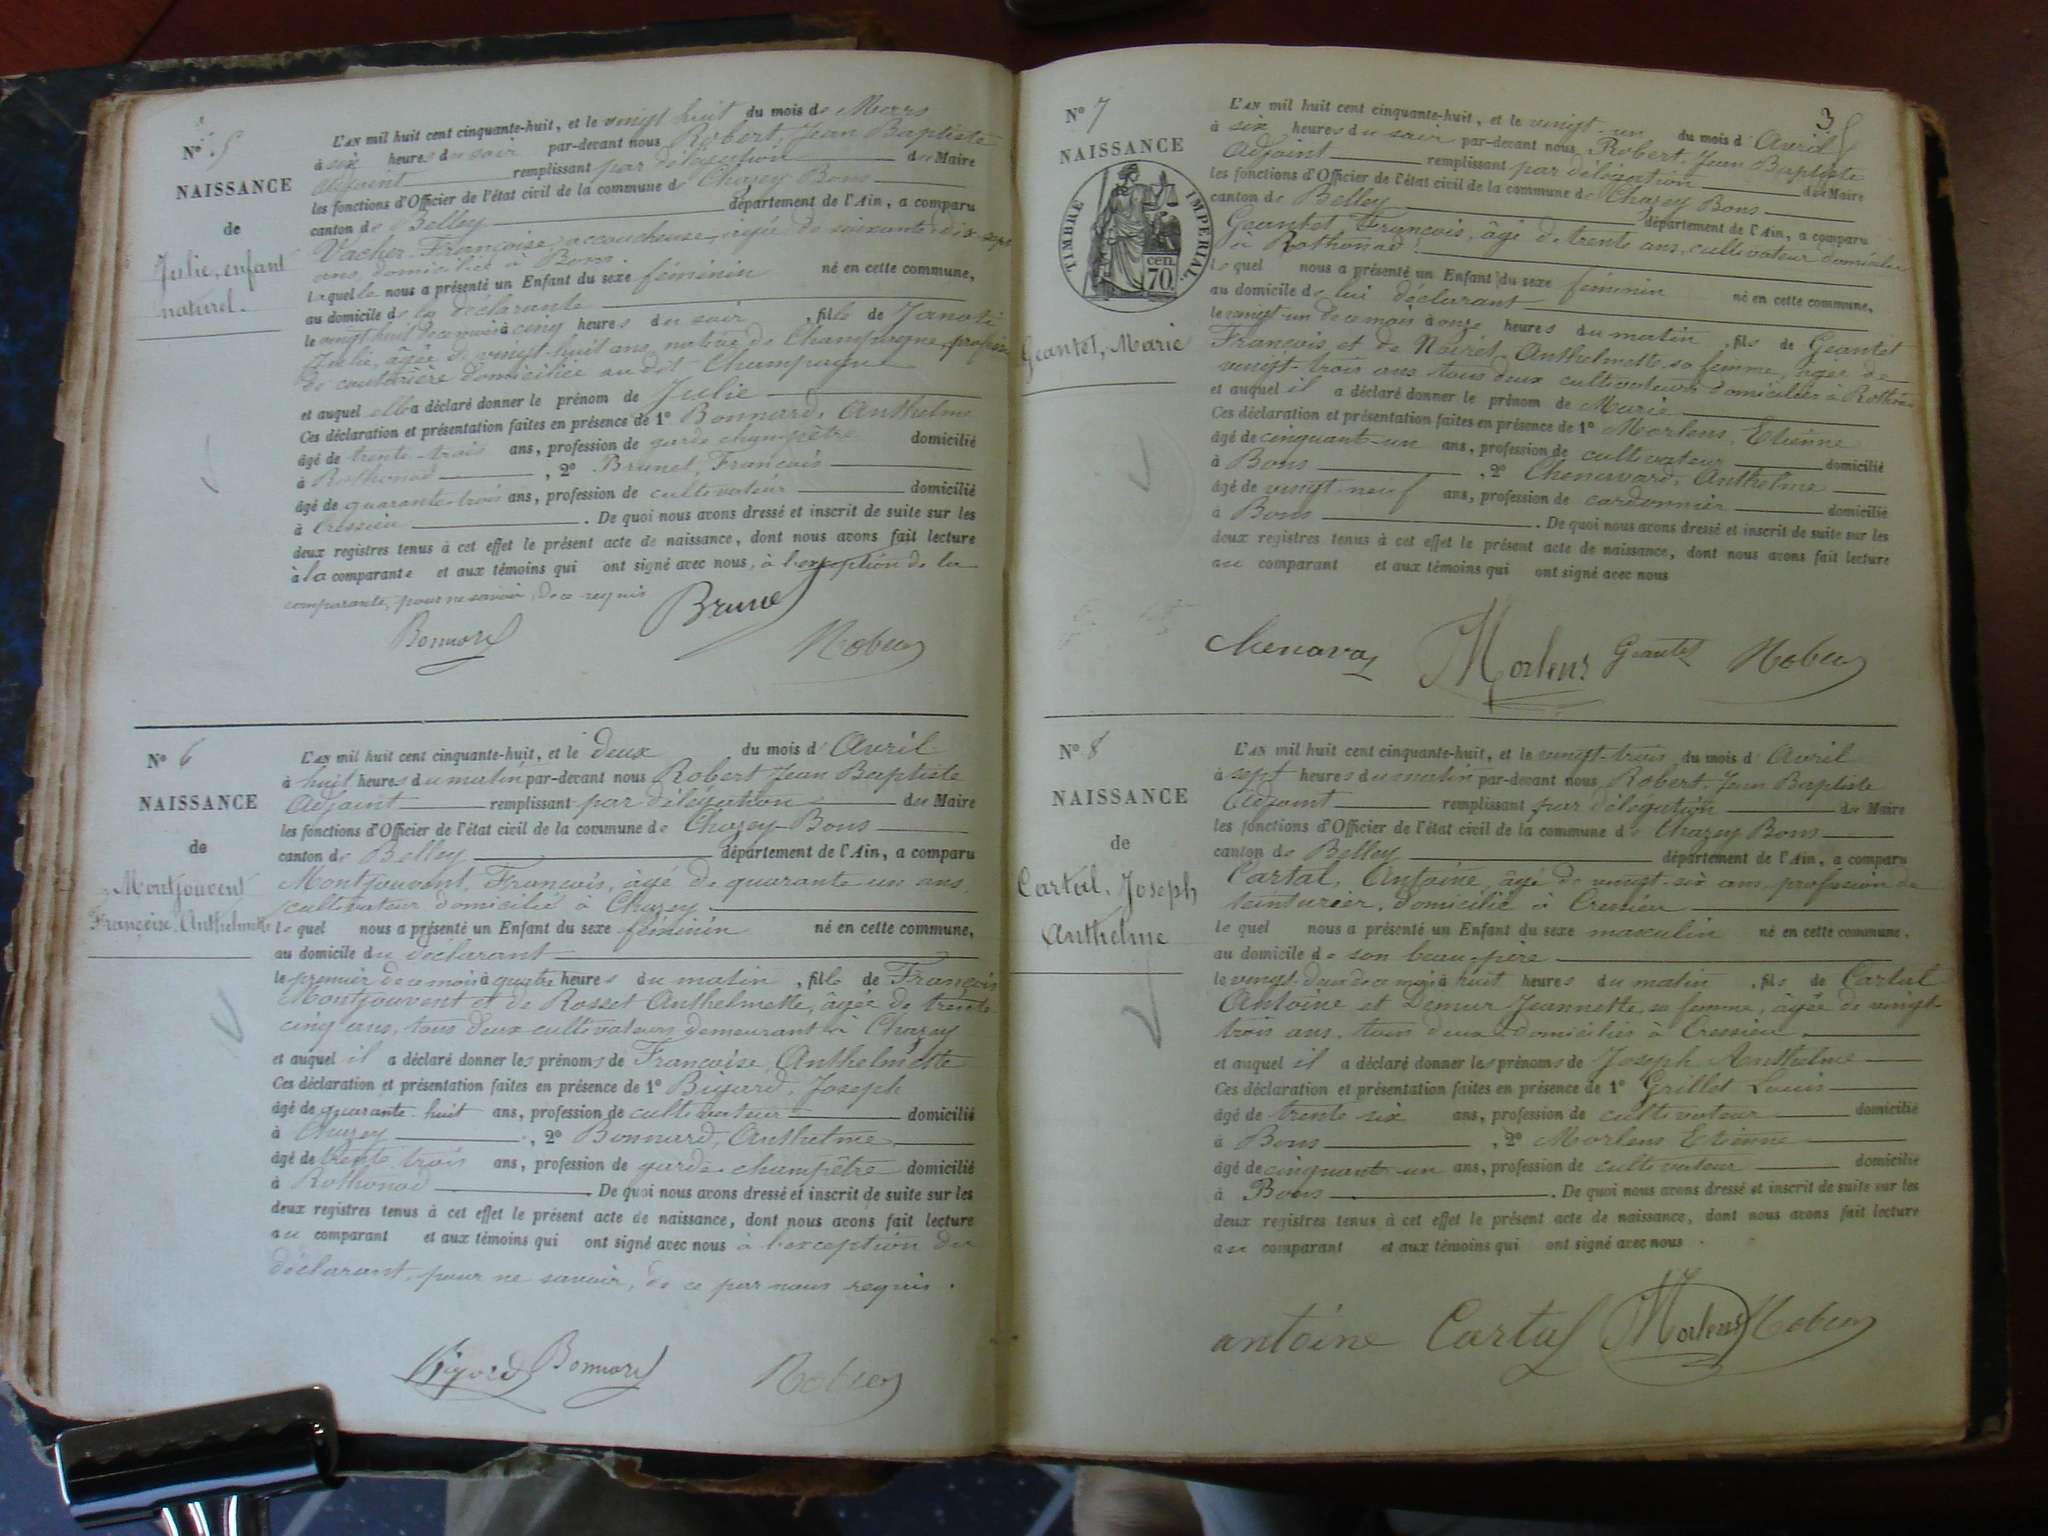 N° 5
NAISSANCE
de
Julie, enfant
naturel.
L'AN mil huit cent cinquante-huit, et le vingt huit du mois de Mars
à six heures du soir par-devant nous Robert Jean Baptiste
adjoint remplissant par délégation du Maire
les fonctions d'Officier de l'état civil de la commune de Chazey Bons
canton de Belley département de l'Ain, a comparu
Vacher Françoise, accoucheuse, agée de soixante dix-sept
ans, domiciliée à Bons.
laquelle nous a présenté un Enfant du sexe féminin né en cette commune,
au domicile de la déclarante
le vingt huit de ce mois à cinq heures du soir, fille de
Julie, agée de vingt-huit ans, native de Champagne, profession
de couturière domiciliée au dit Champagne
et auquel elle a déclaré donner le prénom de Julie
Ces déclaration et présentation faites en présence de 1° Bonnard, Anthelme
âgé de trente-trois ans, profession de garde champêtre domicilié
à Rothonod, 2° Brunet, François
âgé de quarante-trois ans, profession de cultivateur domicilié
à Cressieu. De quoi nous avons dressé et inscrit de suite sur les
deux registres tenus à cet effet le présent acte de naissance, dont nous avons fait lecture
à la comparante et aux témoins qui ont signé avec nous, à l'exception de la
comparante, pour ne savoir, de ce requis
Bonnard Brunet Robert
N° 6
NAISSANCE
de
Montjouvent
Françoise Anthelmette
L'AN mil huit cent cinquante-huit, et le deux du mois d'Avril
à huit heures du matin par-devant nous Robert Jean Baptiste
Adjoint remplissant par délégation du Maire
les fonctions d'Officier de l'état civil de la commune de Chazey-Bons
canton de Belley département de l'Ain, a comparu
Montjouvent, François, âgé de quarante un ans,
cultivateur domicilié à Chazey
lequel nous a présenté un Enfant du sexe féminin né en cette commune,
au domicile du déclarant
le premier de ce mois à quatre heures du matin, fille de François
Montjouvent et de Rosset Anthelmette, âgée de trente
cinq ans, tous deux cultivateurs demeurant à Chazey
et auquel il a déclaré donner les prénoms de Françoise Anthelmette
Ces déclaration et présentation faites en présence de 1° Bigard, Joseph
âgé de quarante-huit ans, profession de cultivateur domicilié
à Chazey, 2° Bonnard, Anthelme
âgé de trente trois ans, profession de garde-champêtre domicilié
à Rothonod. De quoi nous avons dressé et inscrit de suite sur les
deux registres tenus à cet effet le présent acte de naissance, dont nous avons fait lecture
au comparant et aux témoins qui ont signé avec nous à l'exception du
déclarant, pour ne savoir, de ce par nous requis.
Bigard Bonnard Robert
3
N° 7
NAISSANCE
TIMBRE IMPERIAL.
70 cen.
Geantet, Marie
L'AN mil huit cent cinquante-huit, et le vingt-un du mois d'Avril
à six heures du soir par-devant nous Robert Jean Baptiste
Adjoint remplissant par délégation du Maire
les fonctions d'Officier de l'état civil de la commune de Chazey Bons
canton de Belley département de l'Ain, a comparu
Geantet François, âgé de trente ans, cultivateur domicilié
à Rothonod
lequel nous a présenté un Enfant du sexe féminin né en cette commune,
au domicile de lui déclarant
le vingt-un de ce mois à onze heures du matin, fils de Geantet
François et de Noiret Anthelmette sa femme, agée de
vingt-trois ans tous deux cultivateurs domiciliés à Rothonod
et auquel il a déclaré donner le prénom de Marie
Ces déclaration et présentation faites en présence de 1° Morlens, Etienne
âgé de cinquante-un ans, profession de cultivateur domicilié
à Bons, 2° Chenavard, Anthelme
âgé de vingt-neuf ans, profession de cordonnier domicilié
à Bons. De quoi nous avons dressé et inscrit de suite sur les
deux registres tenus à cet effet le présent acte de naissance, dont nous avons fait lecture
au comparant et aux témoins qui ont signé avec nous
Chenavar Morlens Geantet Robert
N° 8
NAISSANCE
de
Cartal, Joseph
Anthelme
L'AN mil huit cent cinquante-huit, et le vingt-trois du mois d'Avril
à sept heures du matin par-devant nous Robert Jean Baptiste
Adjoint remplissant par délégation du Maire
les fonctions d'Officier de l'état civil de la commune de Chazey Bons
canton de Belley département de l'Ain, a comparu
Cartal, Antoine, âgé de vingt-six ans, profession de
teinturier, domicilié à Cressieu
lequel nous a présenté un Enfant du sexe masculin né en cette commune,
au domicile de son beau-père
le vingt-deux de ce mois à huit heures du matin, fils de Cartal
Antoine et Demur Jeannette, sa femme, âgée de vingt-
trois ans, tous deux domiciliés à Cressieu
et auquel il a déclaré donner les prénoms de Joseph Anthelme
Ces déclaration et présentation faites en présence de 1° Grillet Louis
âgé de trente six ans, profession de cultivateur domicilié
à Bons, 2° Morlens Etienne
âgé de cinquante-un ans, profession de cultivateur domicilié
à Bons. De quoi nous avons dressé et inscrit de suite sur les
deux registres tenus à cet effet le présent acte de naissance, dont nous avons fait lecture
au comparant et aux témoins qui ont signé avec nous.
antoine Cartal Morlens Robert